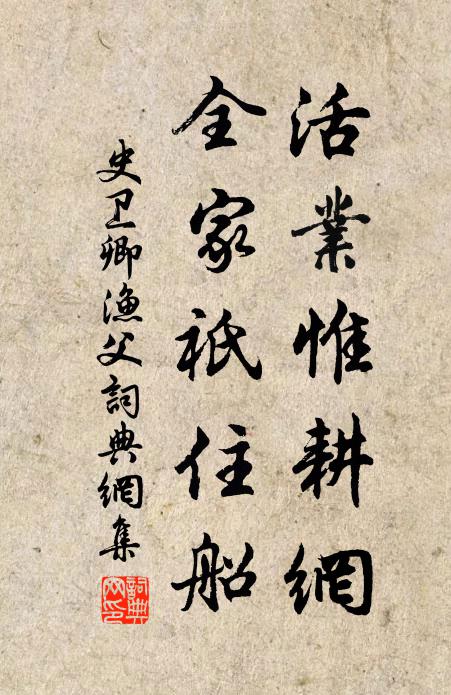 活業惟耕網
全家衹住船
史卫卿漁父詞典網集
詞典網印